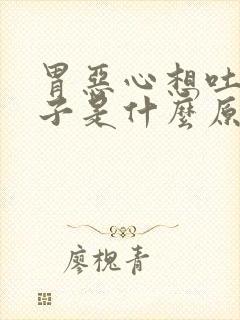 胃恶心想吐
子是什麼原
廖槐青